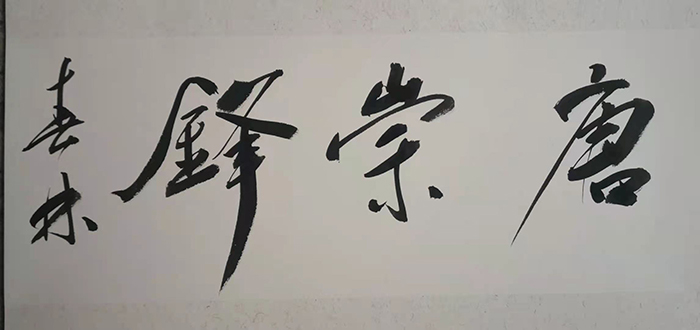 唐崇鋒
春林